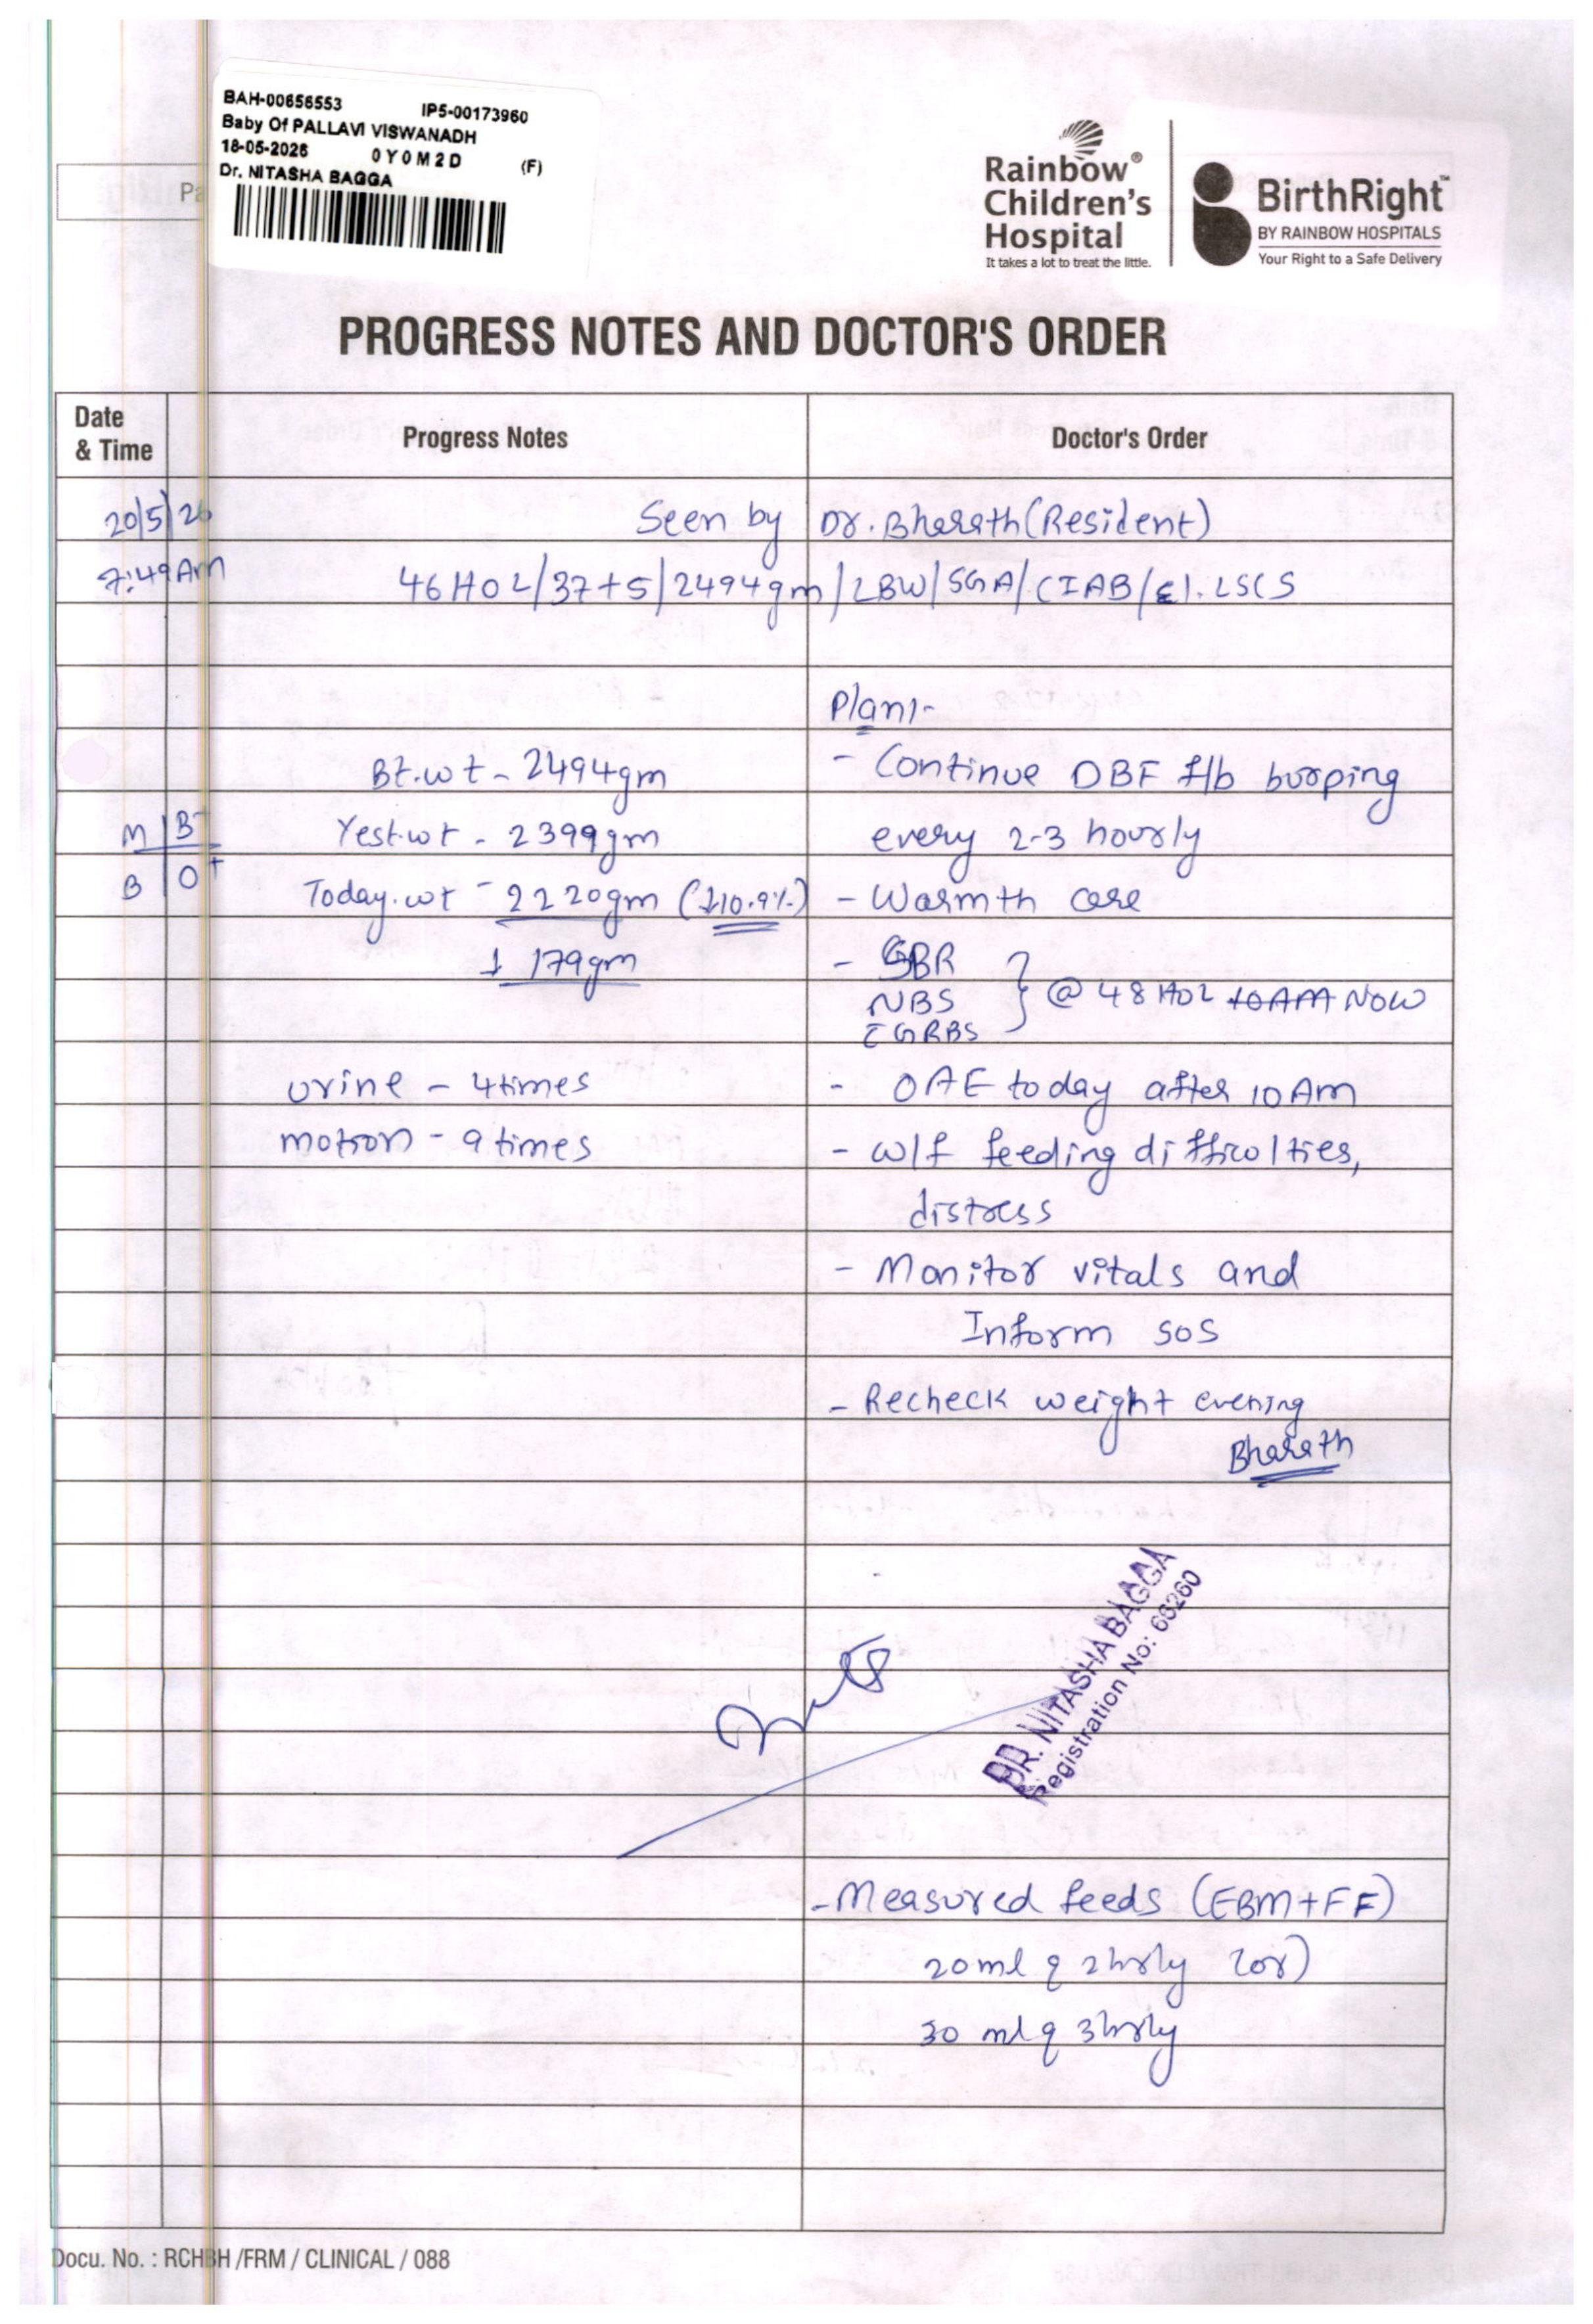 BAH-00656553 IP5-00173960
Baby Of PALLAVI VISWANADH
18-05-2026 0Y0M2D (F)
Dr. NITASHA BAGGA
Pa
Rainbow®
Children's
Hospital
It takes a lot to treat the little.
BirthRight™
BY RAINBOW HOSPITALS
Your Right to a Safe Delivery
PROGRESS NOTES AND DOCTOR'S ORDER
Date
& Time
Progress Notes
Doctor's Order
20/5/26
Seen by Dr. Bharath (Resident)
7:49 AM
46 HOL/37+5/2494gm/LBW/SGA/CIAB/El. LSCS
Plan:-
Bt.wt - 2494gm
- Continue DBF f/b burping
M | B-
Yest.wt - 2399gm
every 2-3 hourly
B | O+
Today.wt - 2220gm (↓10.9%)
- Warmth care
↓ 179gm
- SBR
NBS
GRBS
} @ 48 HOL 10AM NOW
urine - 4 times
- OAE today after 10 Am
motion - 9 times
- w/f feeding difficulties,
distress
- Monitor vitals and
Inform SOS
- Recheck weight evening
Bharath
DR. NITASHA BAGGA
Registration No: 66260
- Measured feeds (EBM+FF)
20ml q 2hrly (or)
30 ml q 3hrly
Docu. No. : RCHBH /FRM / CLINICAL / 088